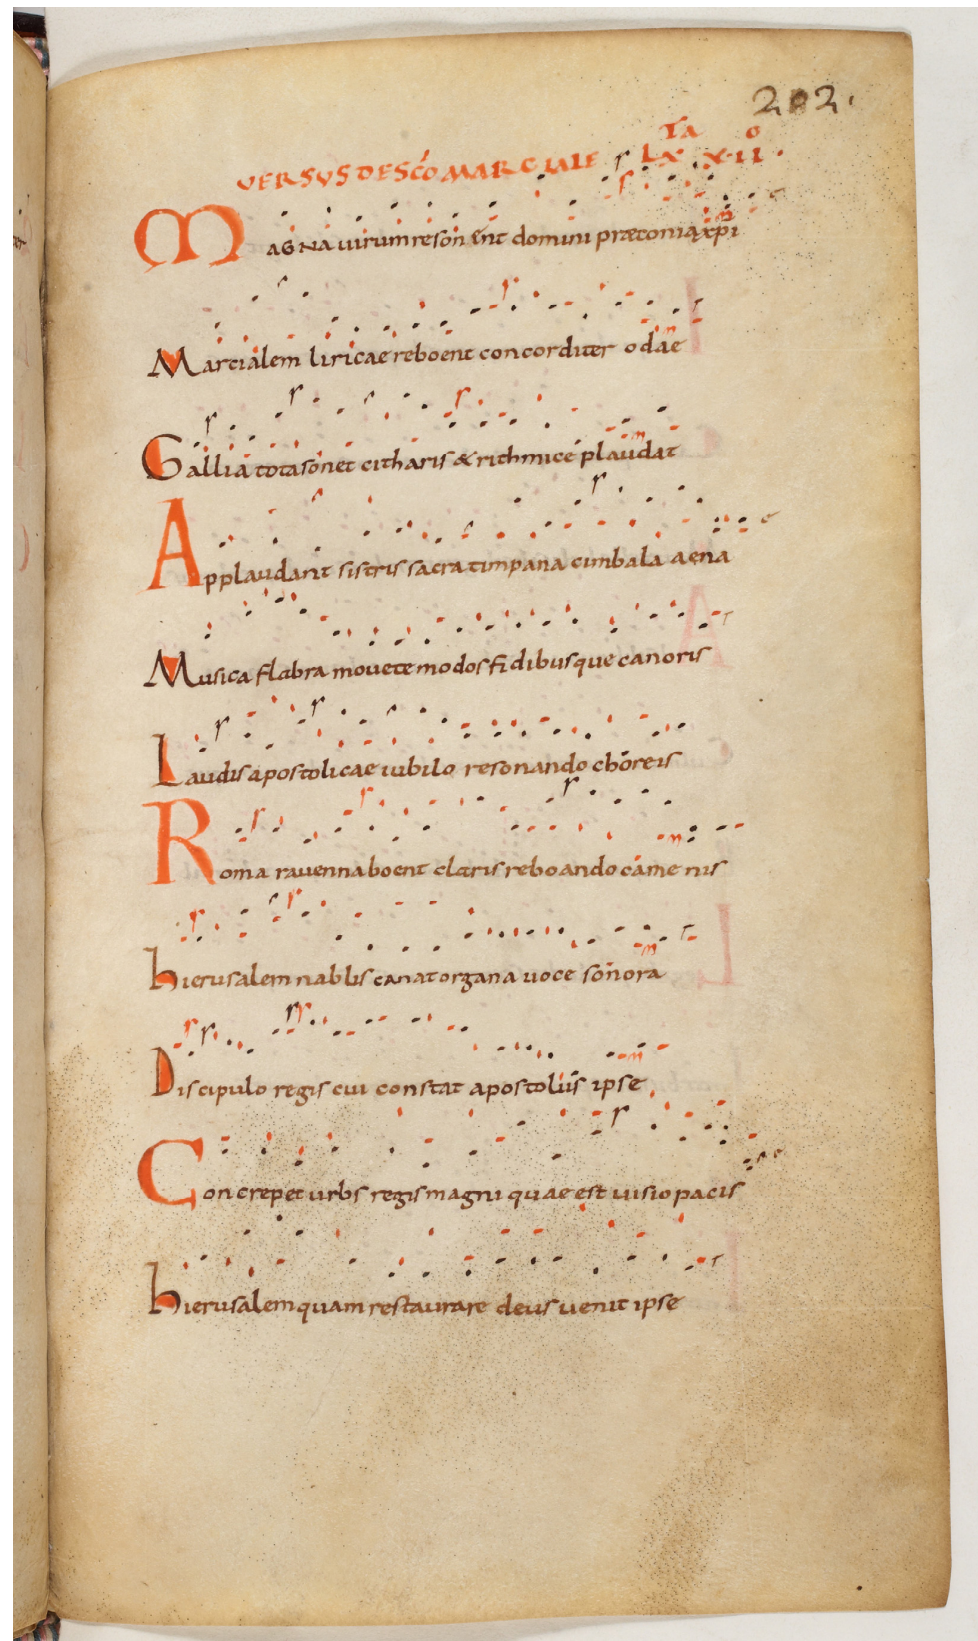 202.
VERSVS DE SCO MARCIALE LXTA XIIO
MAGNA virum resonent domini præconia xpi
Marcialem liricae reboent concorditer odae
Gallia tota sonet citharis & rithmice plaudat
Applaudant sistris sacra timpana cimbala aena
Musica flabra movete modos fidibusque canoris
Laudis apostolicae iubilo resonando choreis
Roma ravenna boent claris reboando camenis
hierusalem nablis canat organa voce sonora
Discipulo regis cui constat apostolus ipse
Concrepet urbs regis magni quae est visio pacis
hierusalem quam restaurare deus venit ipse